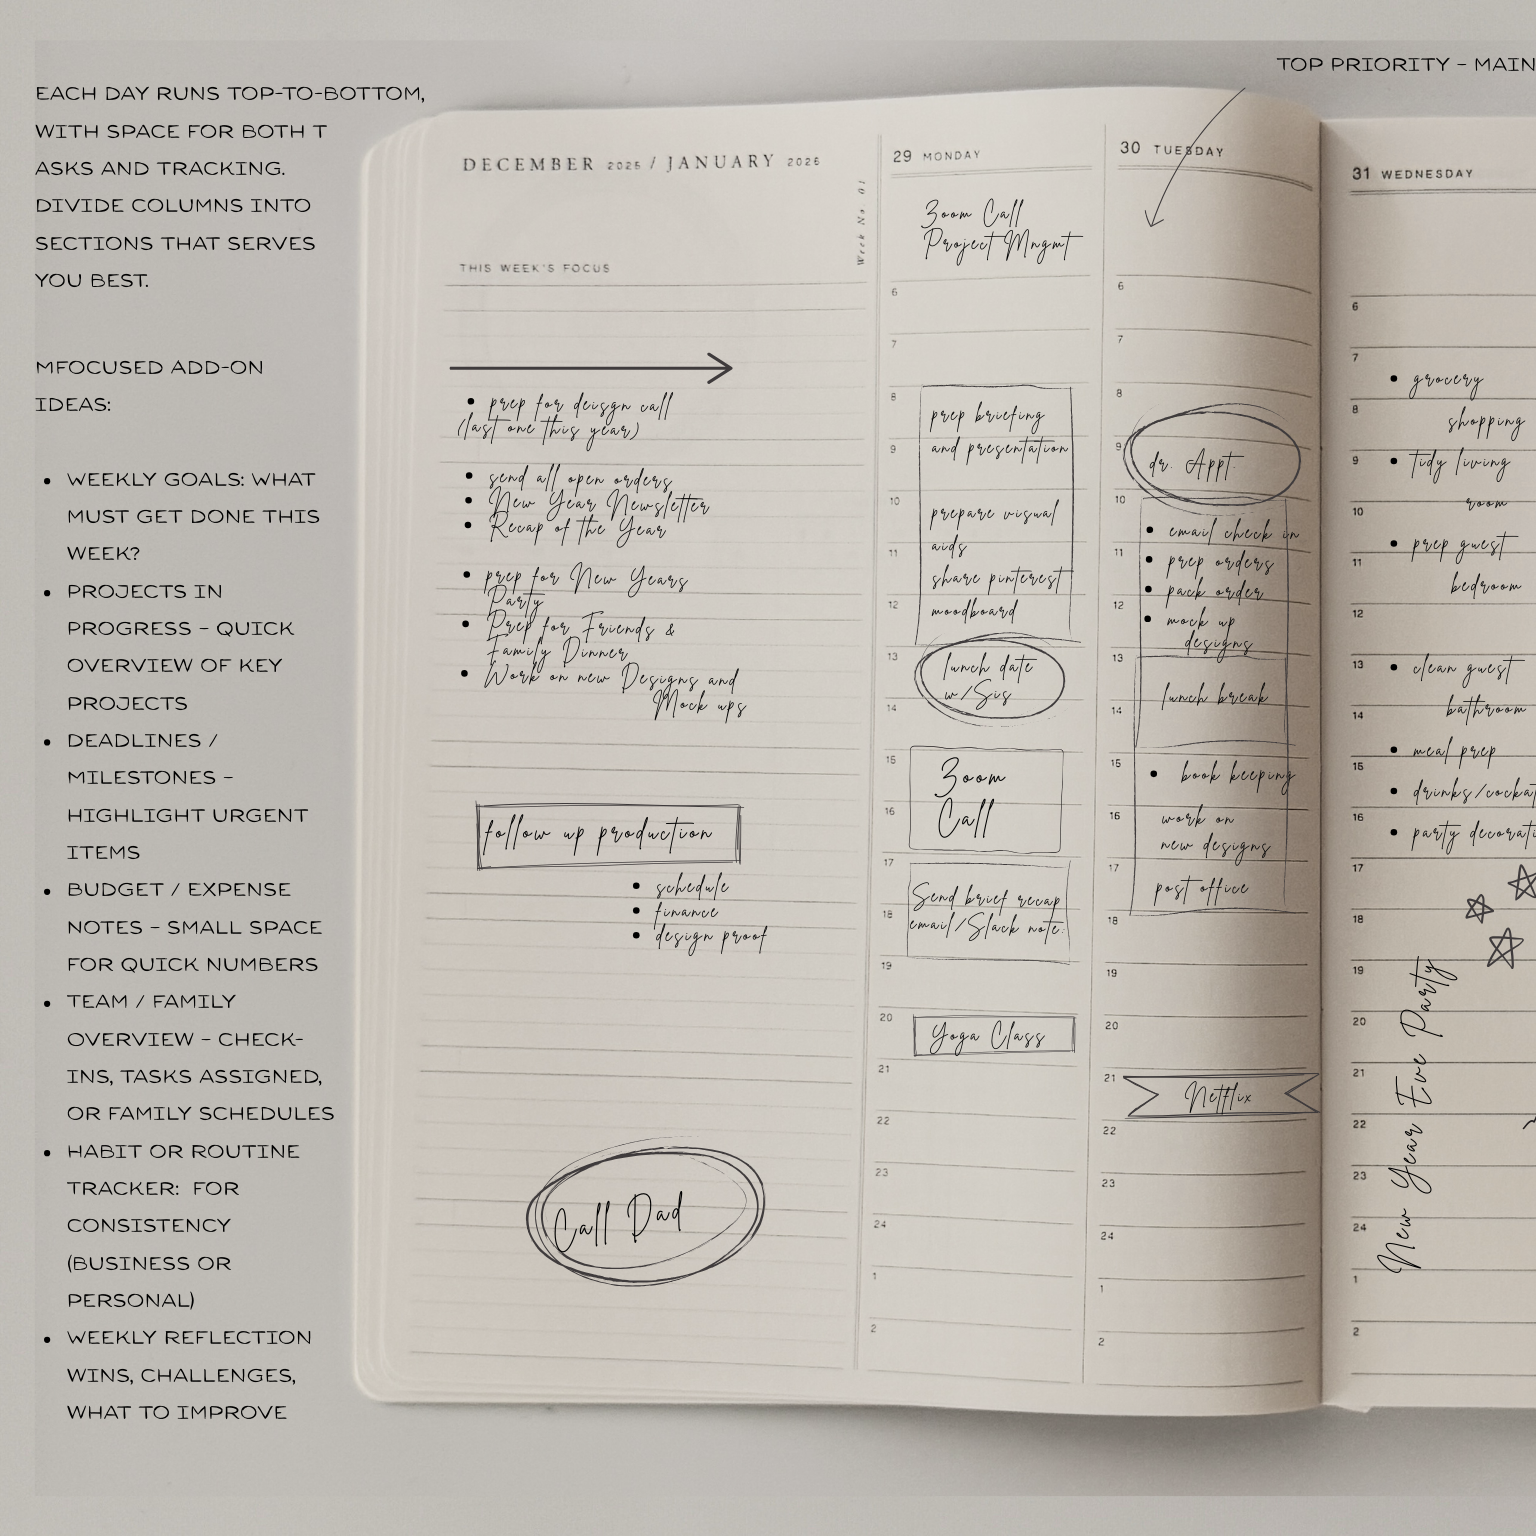 TOP PRIORITY - MAIN
EACH DAY RUNS TOP-TO-BOTTOM,
WITH SPACE FOR BOTH T
ASKS AND TRACKING.
DIVIDE COLUMNS INTO
SECTIONS THAT SERVES
YOU BEST.
MFOCUSED ADD-ON
IDEAS:
• WEEKLY GOALS: WHAT
MUST GET DONE THIS
WEEK?
• PROJECTS IN
PROGRESS - QUICK
OVERVIEW OF KEY
PROJECTS
• DEADLINES /
MILESTONES -
HIGHLIGHT URGENT
ITEMS
• BUDGET / EXPENSE
NOTES - SMALL SPACE
FOR QUICK NUMBERS
• TEAM / FAMILY
OVERVIEW - CHECK-
INS, TASKS ASSIGNED,
OR FAMILY SCHEDULES
• HABIT OR ROUTINE
TRACKER:  FOR
CONSISTENCY
(BUSINESS OR
PERSONAL)
• WEEKLY REFLECTION
WINS, CHALLENGES,
WHAT TO IMPROVE
DECEMBER 2025 / JANUARY 2026
Week No. 01
THIS WEEK'S FOCUS
• prep for deisgn call
(last one this year)
• send all open orders
• New Year Newsletter
• Recap of the Year
• prep for New Years
Party
• Prep for Friends &
Family Dinner
• Work on new Designs and
Mock ups
follow up production
• schedule
• finance
• design proof
Call Dad
29 MONDAY
Zoom Call
Project Mngmt
6
7
8
prep briefing
9
and presentation
10
prepare visual
11
aids
share pinterest
12
moodboard
13
lunch date
w/Sis
14
15
Zoom
16
Call
17
Send brief recap
18
email/Slack note.
19
20
Yoga Class
21
22
23
24
1
2
30 TUESDAY
6
7
8
9
dr. Appt.
10
• email check in
11
• prep orders
• pack order
12
• mock up
designs
13
lunch break
14
15
• book keeping
16
work on
new designs
17
post office
18
19
20
21
Netflix
22
23
24
1
2
31 WEDNESDAY
6
7
• grocery
8
shopping
9
• tidy living
room
10
• prep guest
11
bedroom
12
13
• clean guest
14
bathroom
• meal prep
15
• drinks/cockat
16
• party decorati
17
18
19
20
21
22
23
24
New Year Eve Party
1
2